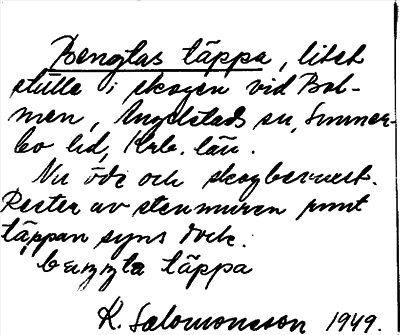 Bengtas täppa, litet
ställe i skogen vid Bol-
men, Angelstads sn, Sunner-
bo hd, Krb. län.
Nu öde och skogbevuxet.
Rester av stenmuren runt
täppan syns dock.
bæŋŋta täppa
K. Salomonsson 1949.